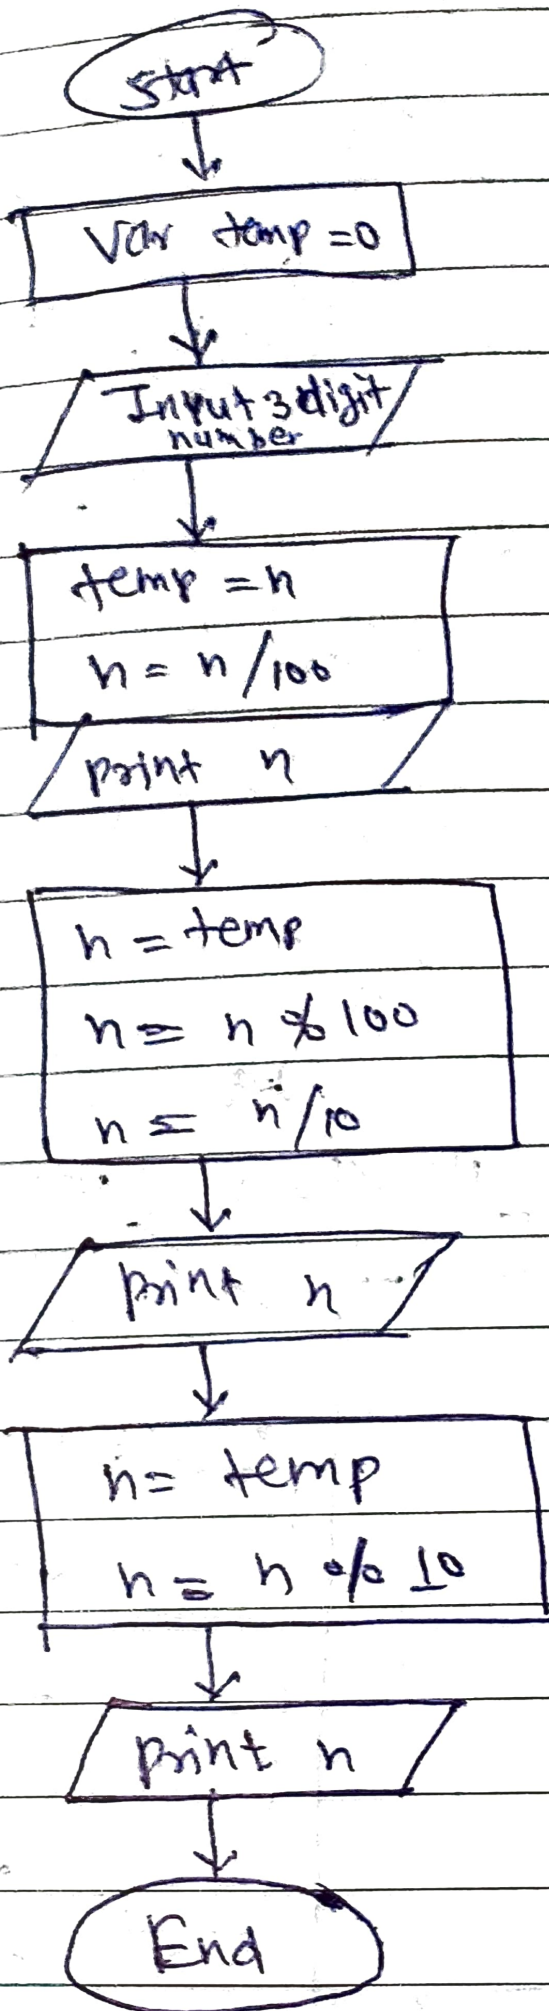 Start
Var temp = 0
Input 3 digit
number
temp = n
n = n / 100
print n
n = temp
n = n % 100
n = n / 10
print n
n = temp
n = n % 10
print n
End